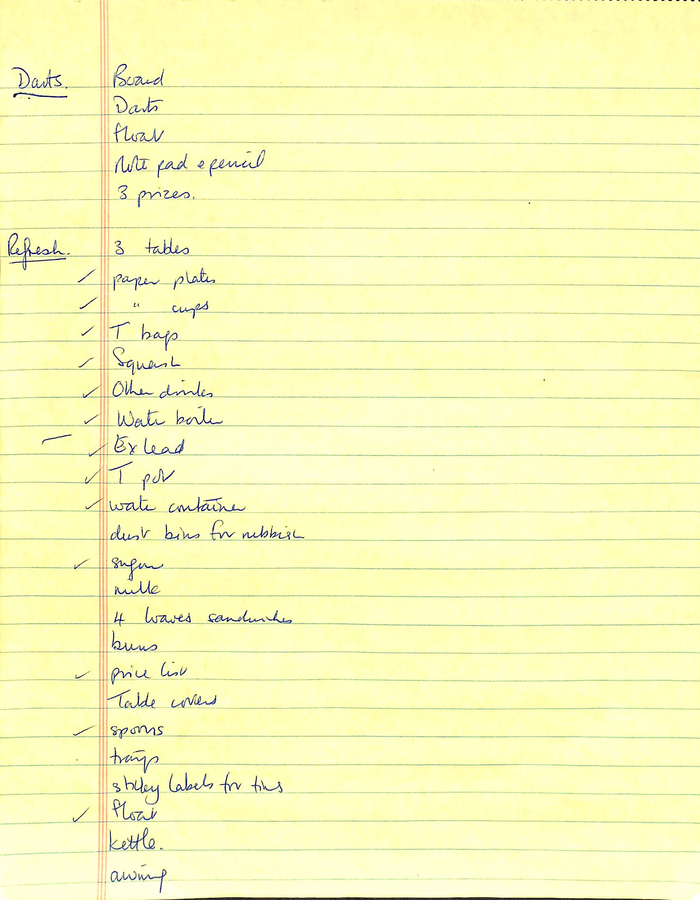 Darts. Board
Darts
float
Note pad & pencil
3 prizes.
Refresh. 3 tables
✓ paper plates
✓ " cups
✓ T bags
✓ Squash
✓ Other drinks
✓ Water boiler
— ✓ Ex lead
✓ T pot
✓ water container
dust bins for rubbish
✓ sugar
milk
4 loaves sandwiches
buns
✓ price list
Table covers
✓ spoons
trays
sticky labels for tins
✓ float
kettle.
awning